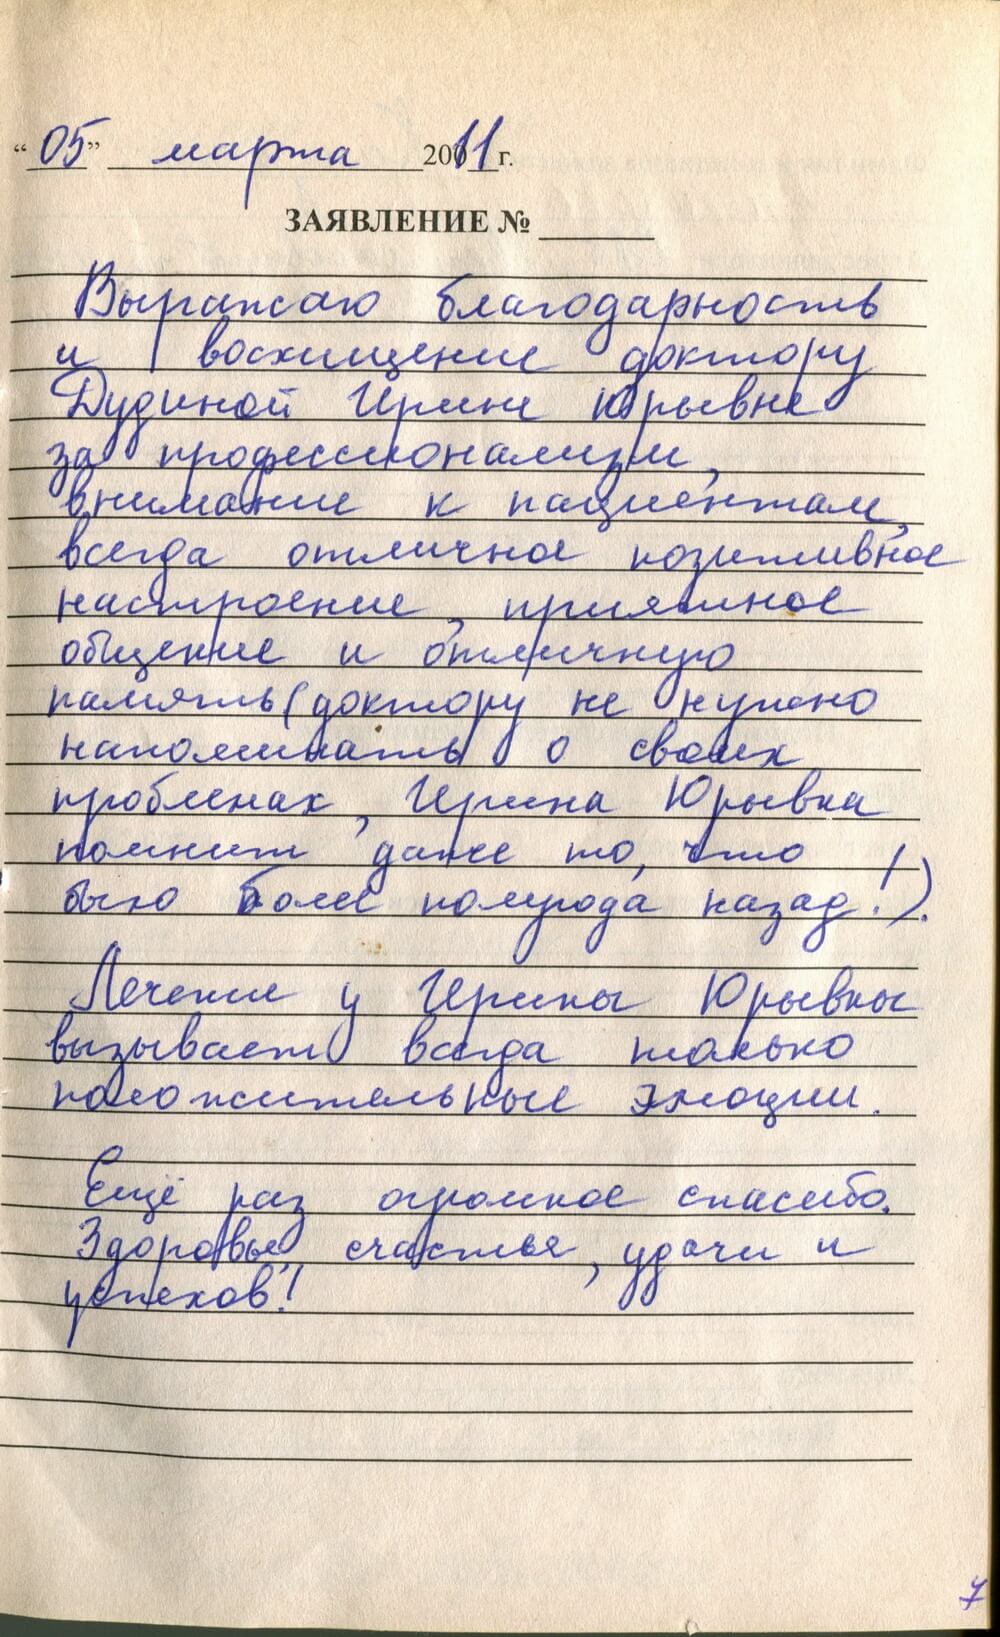 “05” марта 2011 г.
ЗАЯВЛЕНИЕ №
Выражаю благодарность
и восхищение доктору
Дудиной Ирине Юрьевне
за профессионализм,
внимание к пациентам,
всегда отличное позитивное
настроение, приятное
общение и отличную
память (доктору не нужно
напоминать о своих
проблемах, Ирина Юрьевна
помнит даже то, что
было более полугода назад!).
Лечение у Ирины Юрьевны
вызывает всегда только
положительные эмоции.
Ещё раз огромное спасибо.
Здоровья, счастья, удачи и
успехов!
7